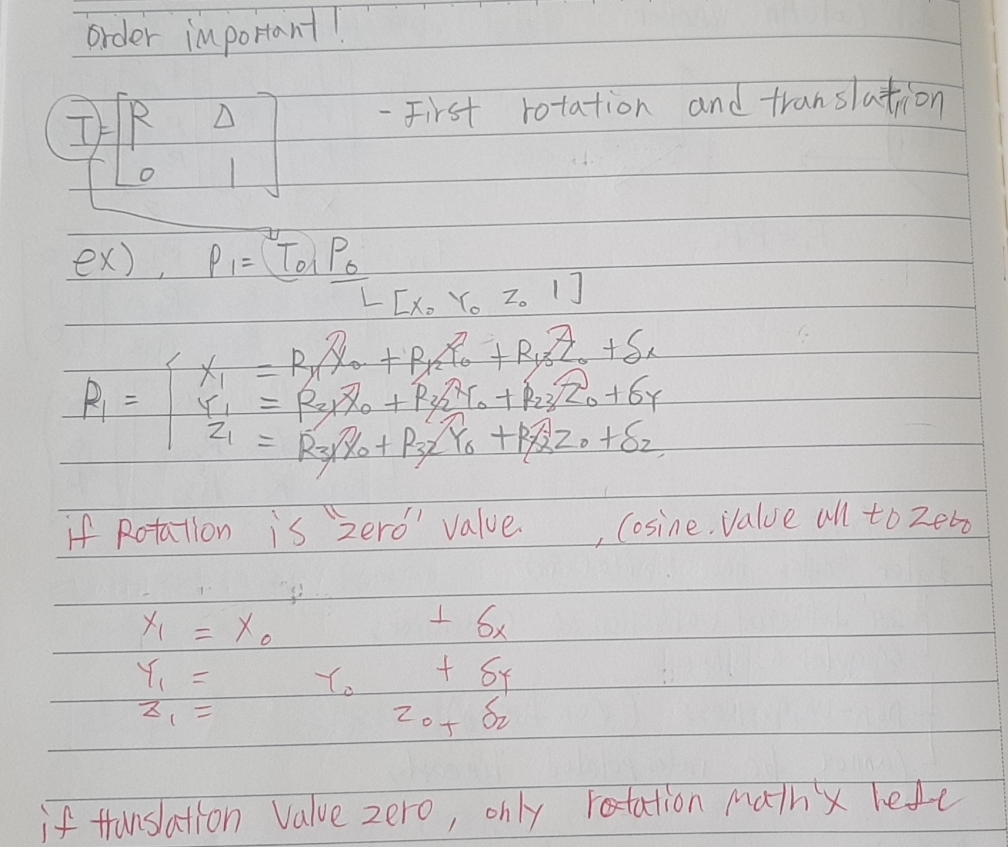 order important!
T = [R Δ - First rotation and translation
0 1]
ex), P₁ = T₀₁ P₀
[X₀ Y₀ Z₀ 1]
X₁ = R₁₁X₀ + R₁₂Y₀ + R₁₃Z₀ + δx
P₁ = Y₁ = R₂₁X₀ + R₂₂Y₀ + R₂₃Z₀ + δY
Z₁ = R₃₁X₀ + R₃₂Y₀ + R₃₃Z₀ + δz
if Rotation is "zero" value. , Cosine. Value all to zero
X₁ = X₀ + δx
Y₁ = Y₀ + δY
Z₁ = Z₀ + δz
if translation Value zero, only rotation Math'x here